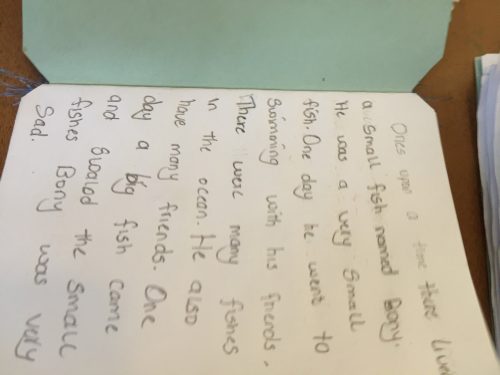 Ones upon a time there lived
a small fish named Bony.
He was a very small
fish. One day he went to
Swimming with his friends.
There were many fishes
in the ocean. He also
have many friends. One
day a big fish came
and Swalod the small
fishes Bony was very
Sad.